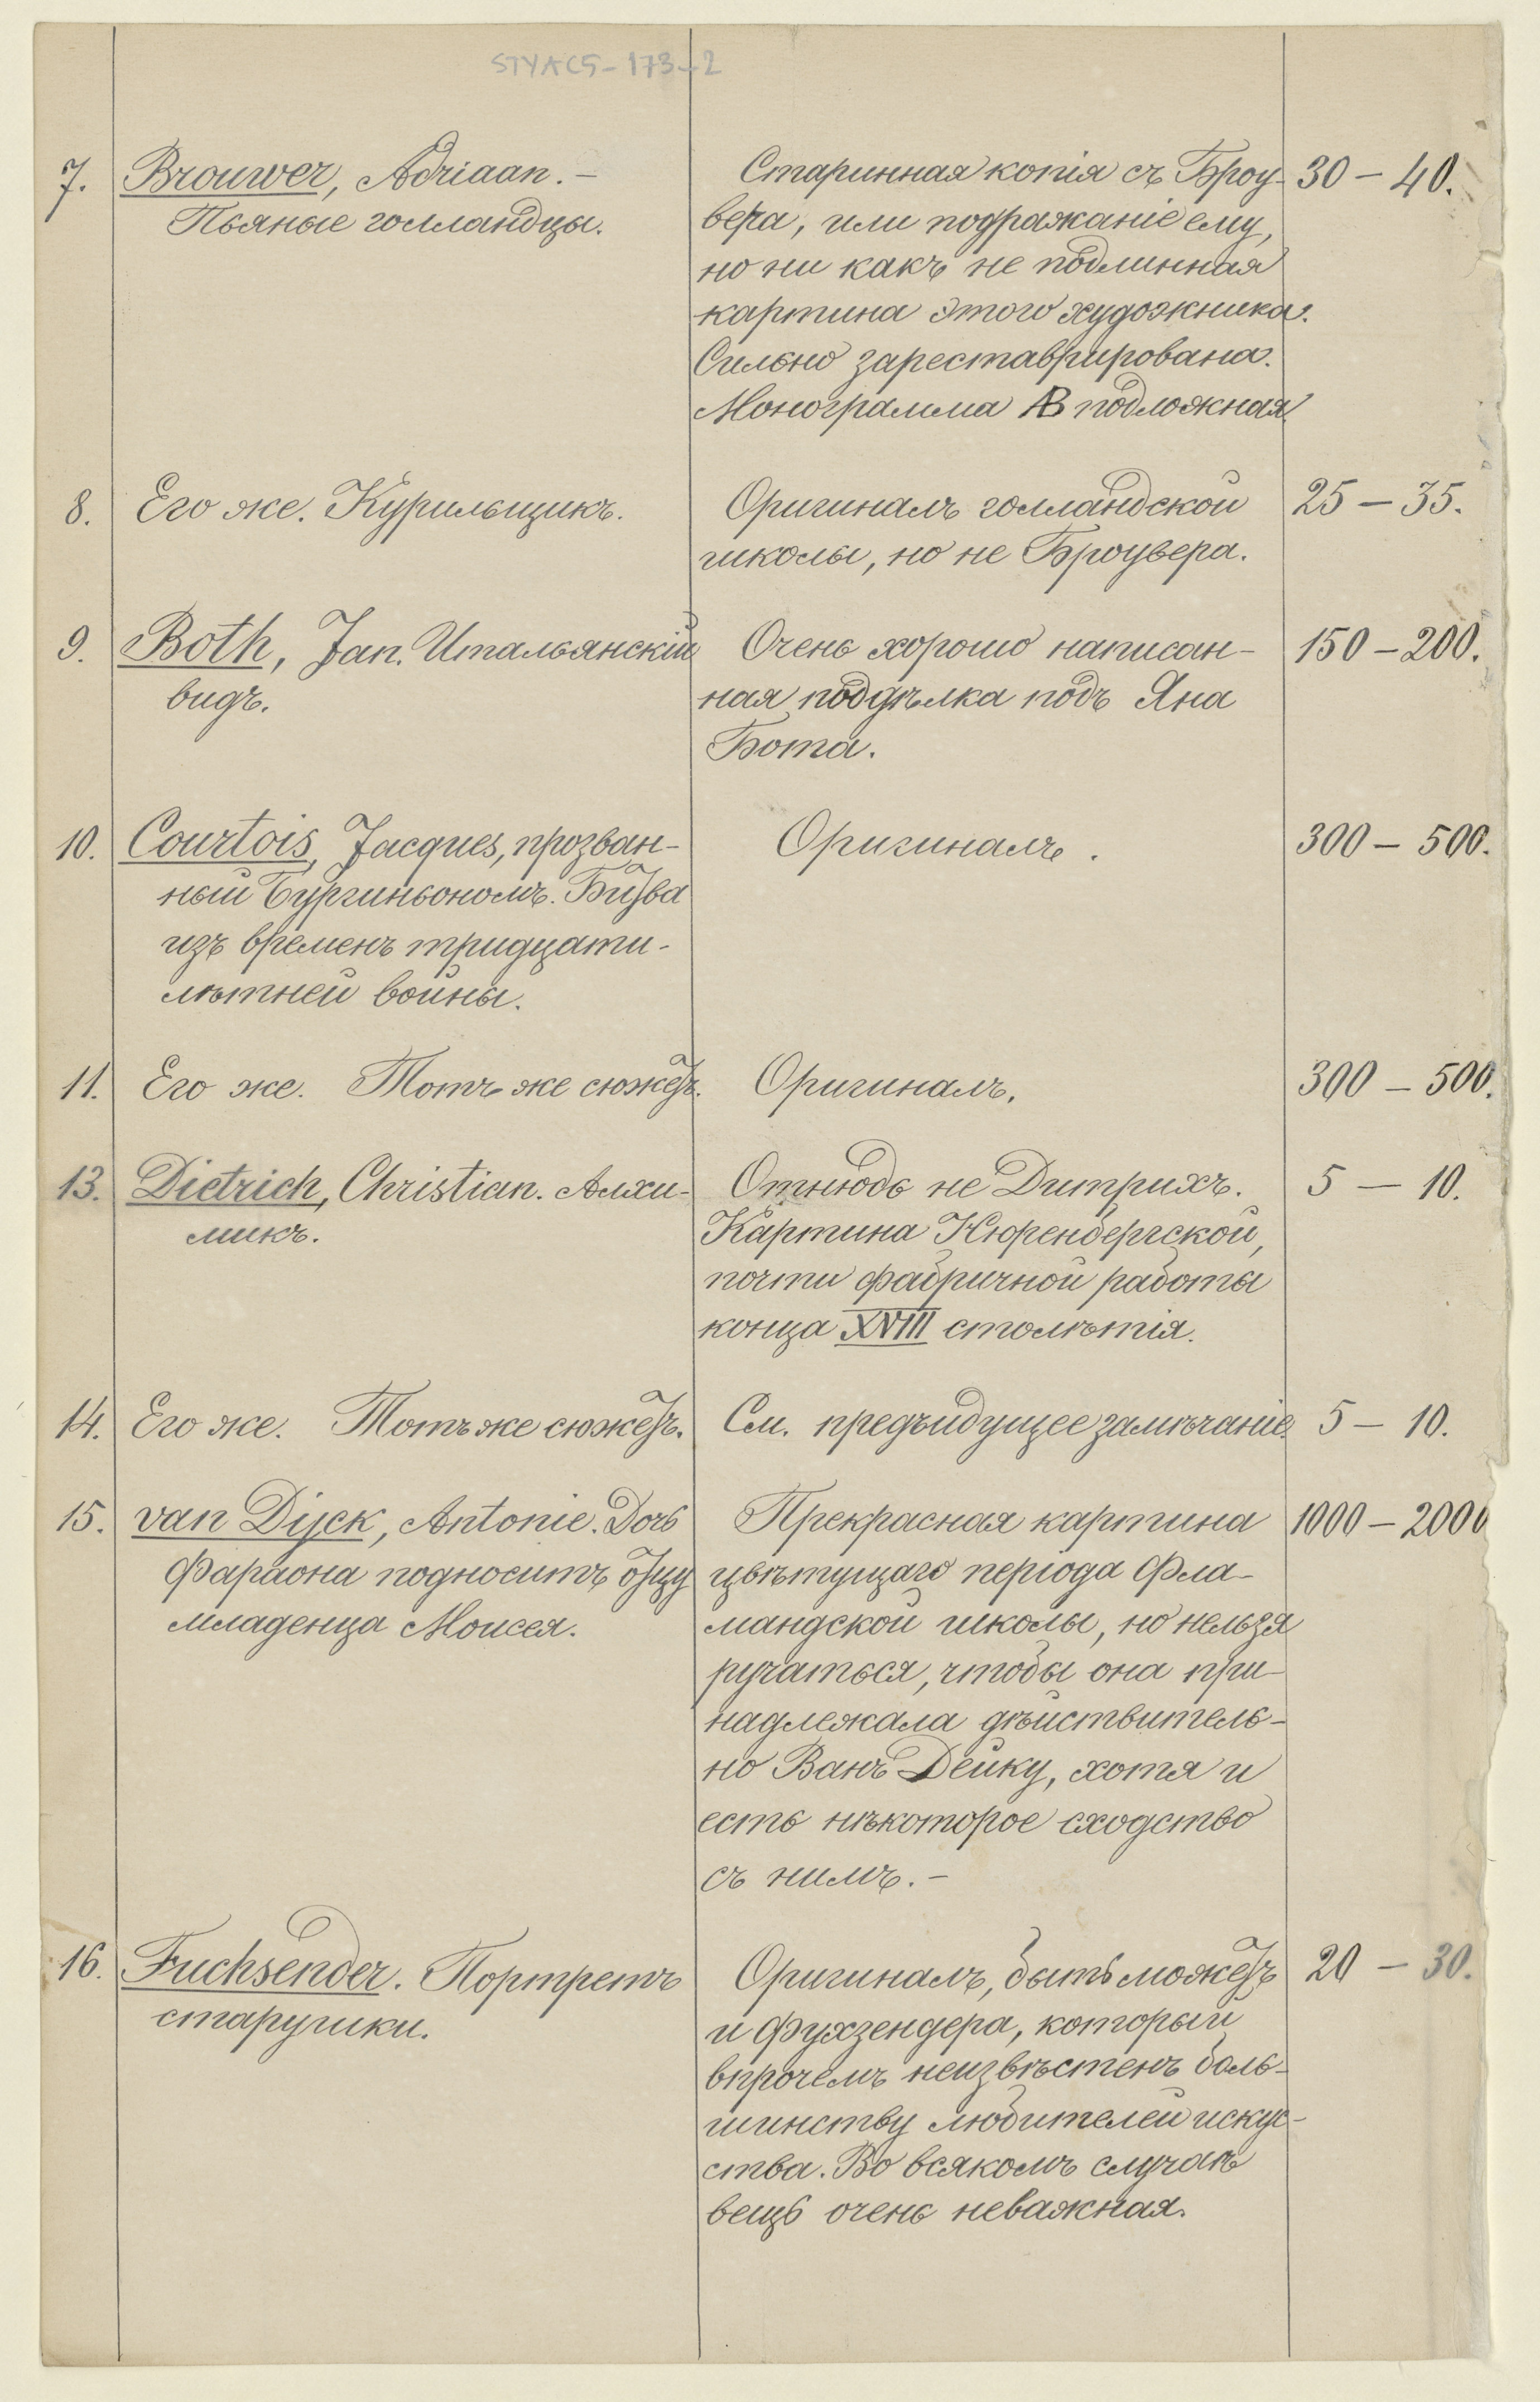 STYAC5-173-2
7. Brouwer, Adriaan. – Старинная копія съ Броу- 30 – 40.
Пьяные голландцы. вера, или подражаніе ему,
но ни какъ не подлинная
картина этого художника.
Сильно зареставрирована.
Монограмма AB подложная.
8. Его же. Курильщикъ. Оригиналъ голландской 25 – 35.
школы, но не Броувера.
9. Both, Jan. Итальянскій Очень хорошо написан- 150 – 200.
видъ. ная поддѣлка подъ Яна
Бота.
10. Courtois, Jacques, прозван- Оригиналъ. 300 – 500.
ный Бургиньономъ. Битва
изъ временъ тридцати-
лѣтней войны.
11. Его же. Тотъ же сюжетъ. Оригиналъ. 300 – 500.
13. Dietrich, Christian. Алхи- Отнюдь не Дитрихъ. 5 – 10.
микъ. Картина Нюренбергской,
почти фабричной работы
конца XVIII столѣтія.
14. Его же. Тотъ же сюжетъ. См. предъидущее замѣчаніе. 5 – 10.
15. van Dijck, Antonie. Дочь Прекрасная картина 1000 – 2000
Фараона подноситъ отцу цвѣтущаго періода Фла-
младенца Моисея. мандской школы, но нельзя
ручаться, чтобы она при-
надлежала дѣйствитель-
но Ванъ Дейку, хотя и
есть нѣкоторое сходство
съ нимъ. –
16. Fuchsender. Портретъ Оригиналъ, быть можетъ 20 – 30.
старушки. и Фухзендера, который
впрочемъ неизвѣстенъ боль-
шинству любителей искус-
ства. Во всякомъ случаѣ
вещь очень неважная.